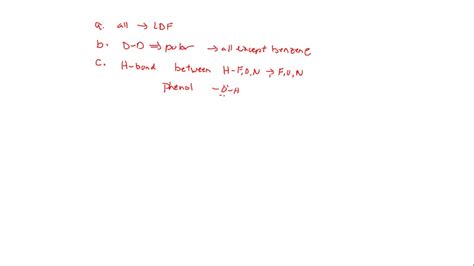 a. all → LDF
b. D-D ⇒ polar → all except benzene
c. H-bond between H-F,O,N → F,O,N
Phenol -Ö-H